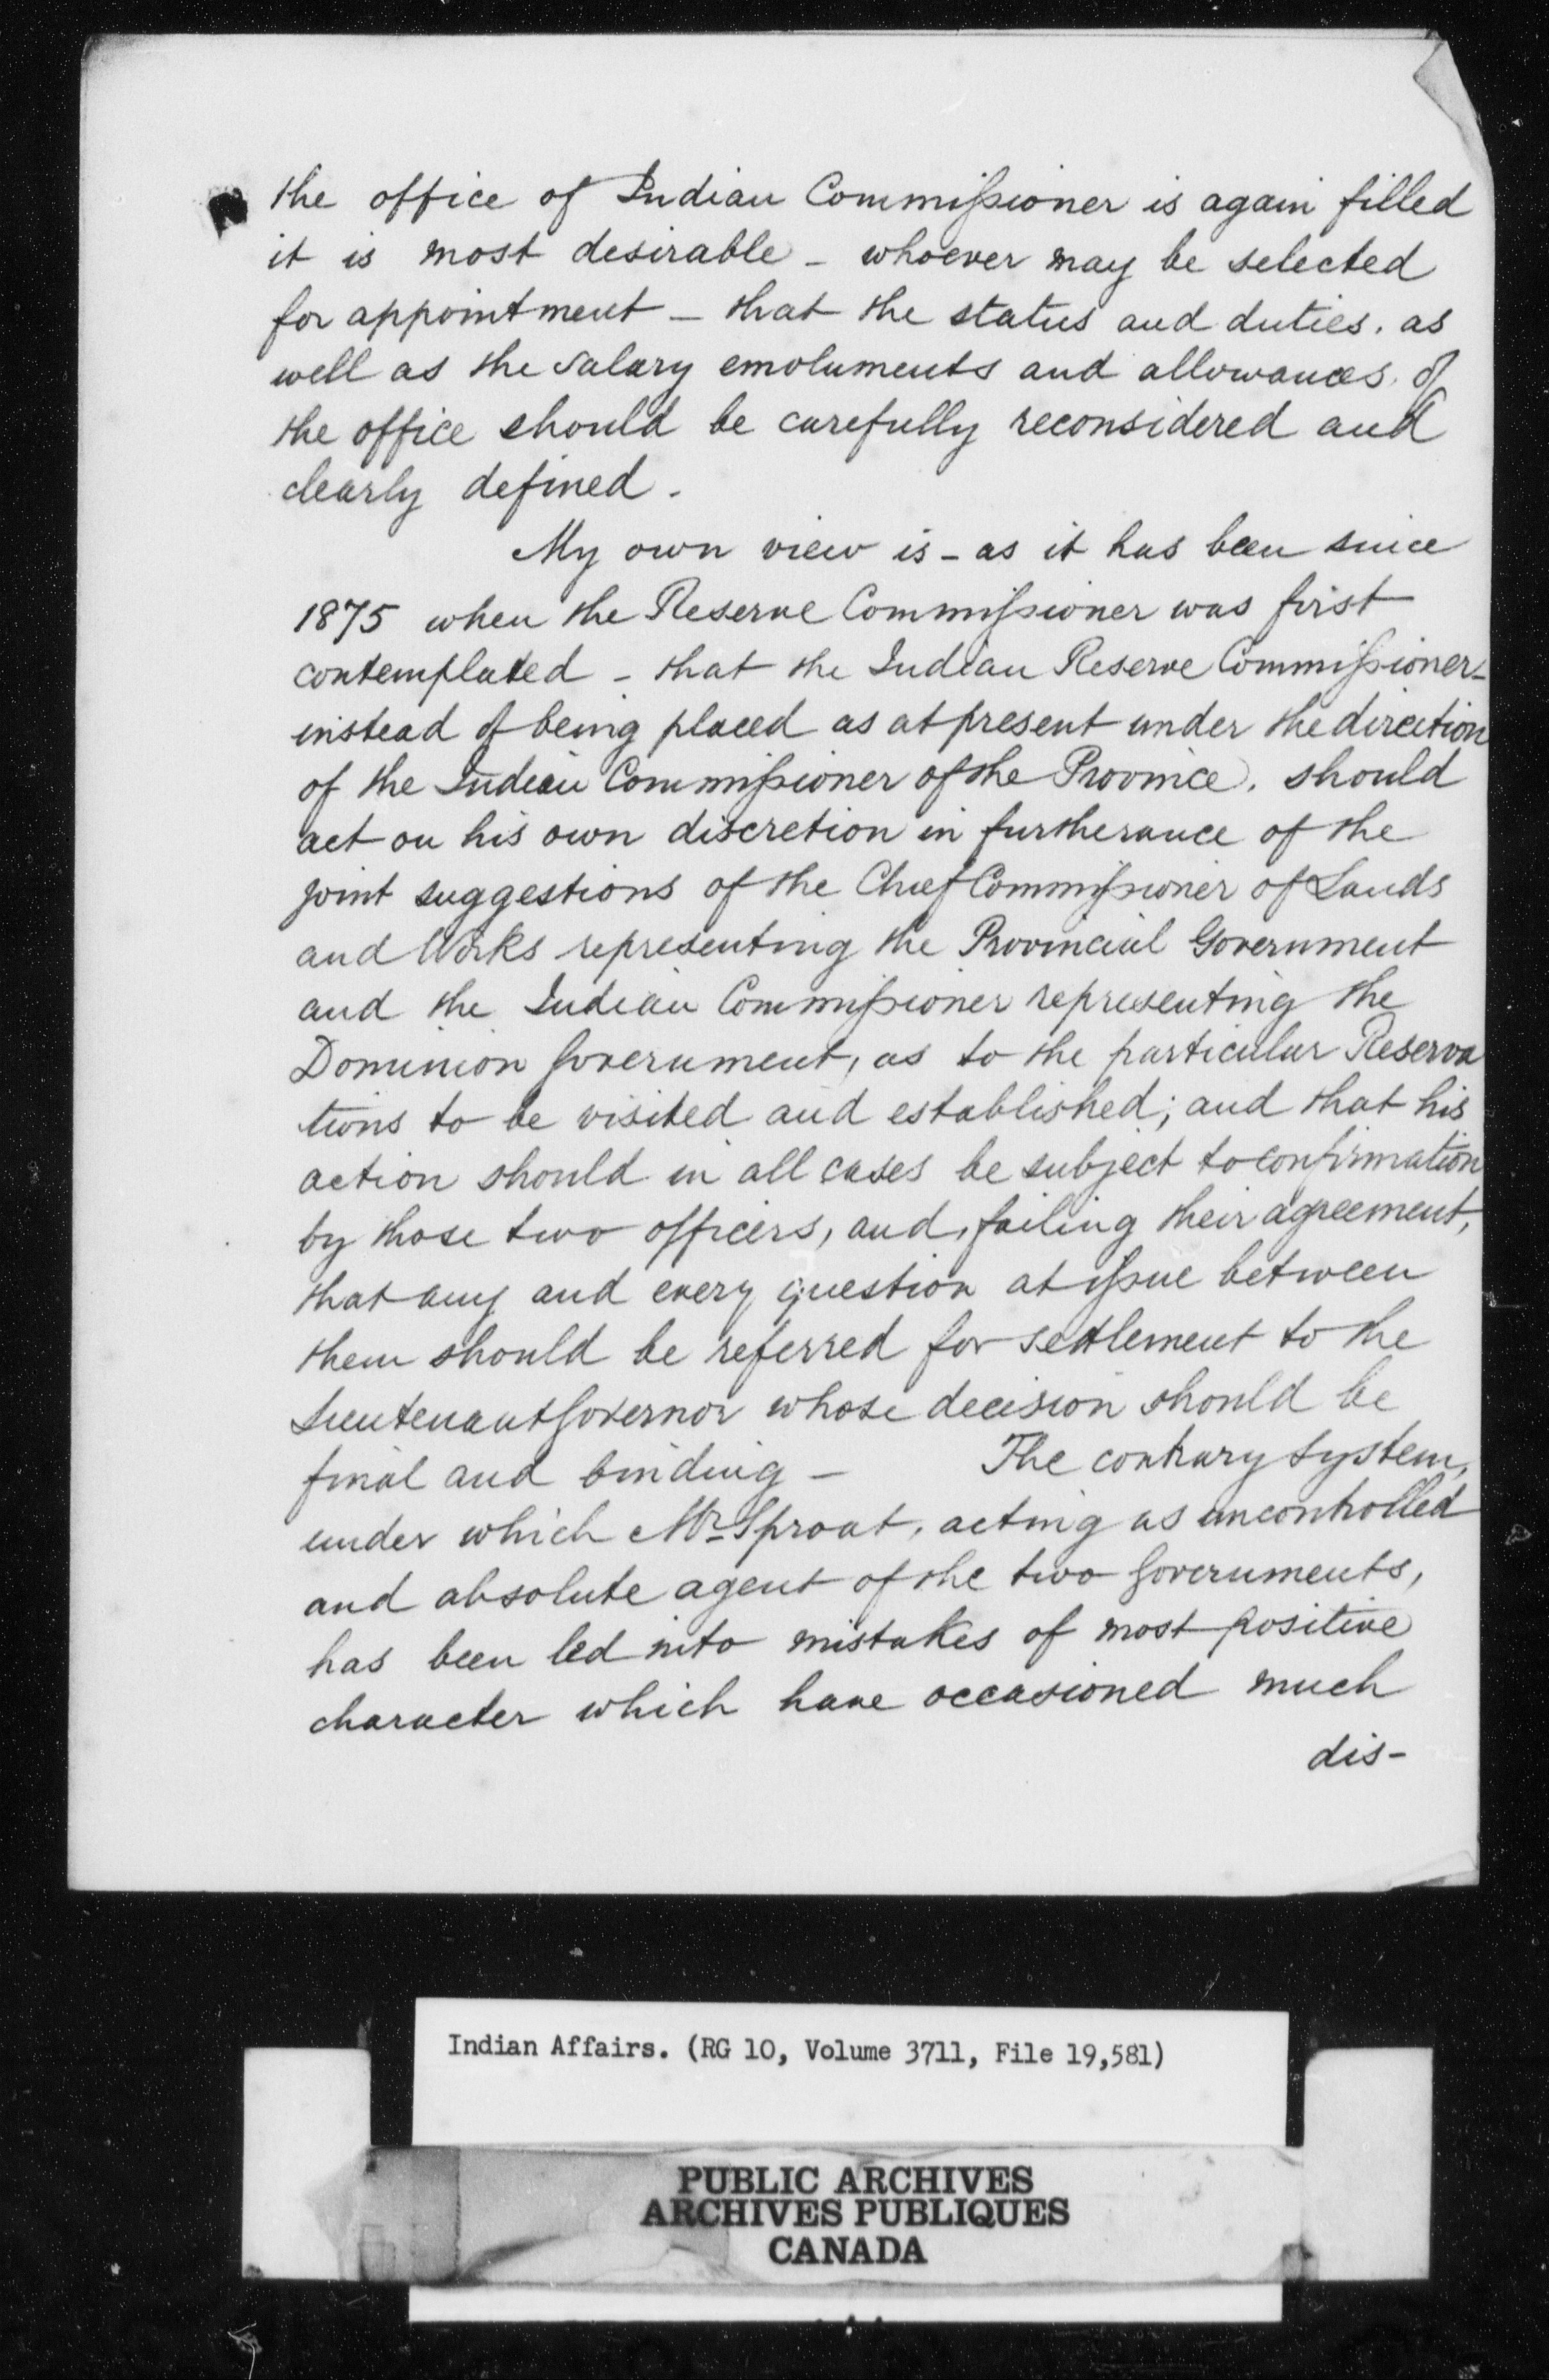 the office of Indian Commissioner is again filled
it is most desirable - whoever may be selected
for appointment - that the status and duties, as
well as the salary emoluments and allowances, of
the office should be carefully reconsidered and
clearly defined.
My own view is - as it has been since
1875 when the Reserve Commissioner was first
contemplated - that the Indian Reserve Commissioner -
instead of being placed as at present under the direction
of the Indian Commissioner of the Province, should
act on his own discretion in furtherance of the
joint suggestions of the Chief Commissioner of Lands
and Works representing the Provincial Government
and the Indian Commissioner representing the
Dominion Government, as to the particular Reserva
tions to be visited and established; and that his
action should in all cases be subject to confirmation
by those two officers, and, failing their agreement,
that any and every question at issue between
them should be referred for settlement to the
Lieutenant Governor whose decision should be
final and binding - The contrary system,
under which Mr Sproat, acting as uncontrolled
and absolute agent of the two Governments,
has been led into mistakes of most positive
character which have occasioned much
dis-
Indian Affairs. (RG 10, Volume 3711, File 19,581)
PUBLIC ARCHIVES
ARCHIVES PUBLIQUES
CANADA